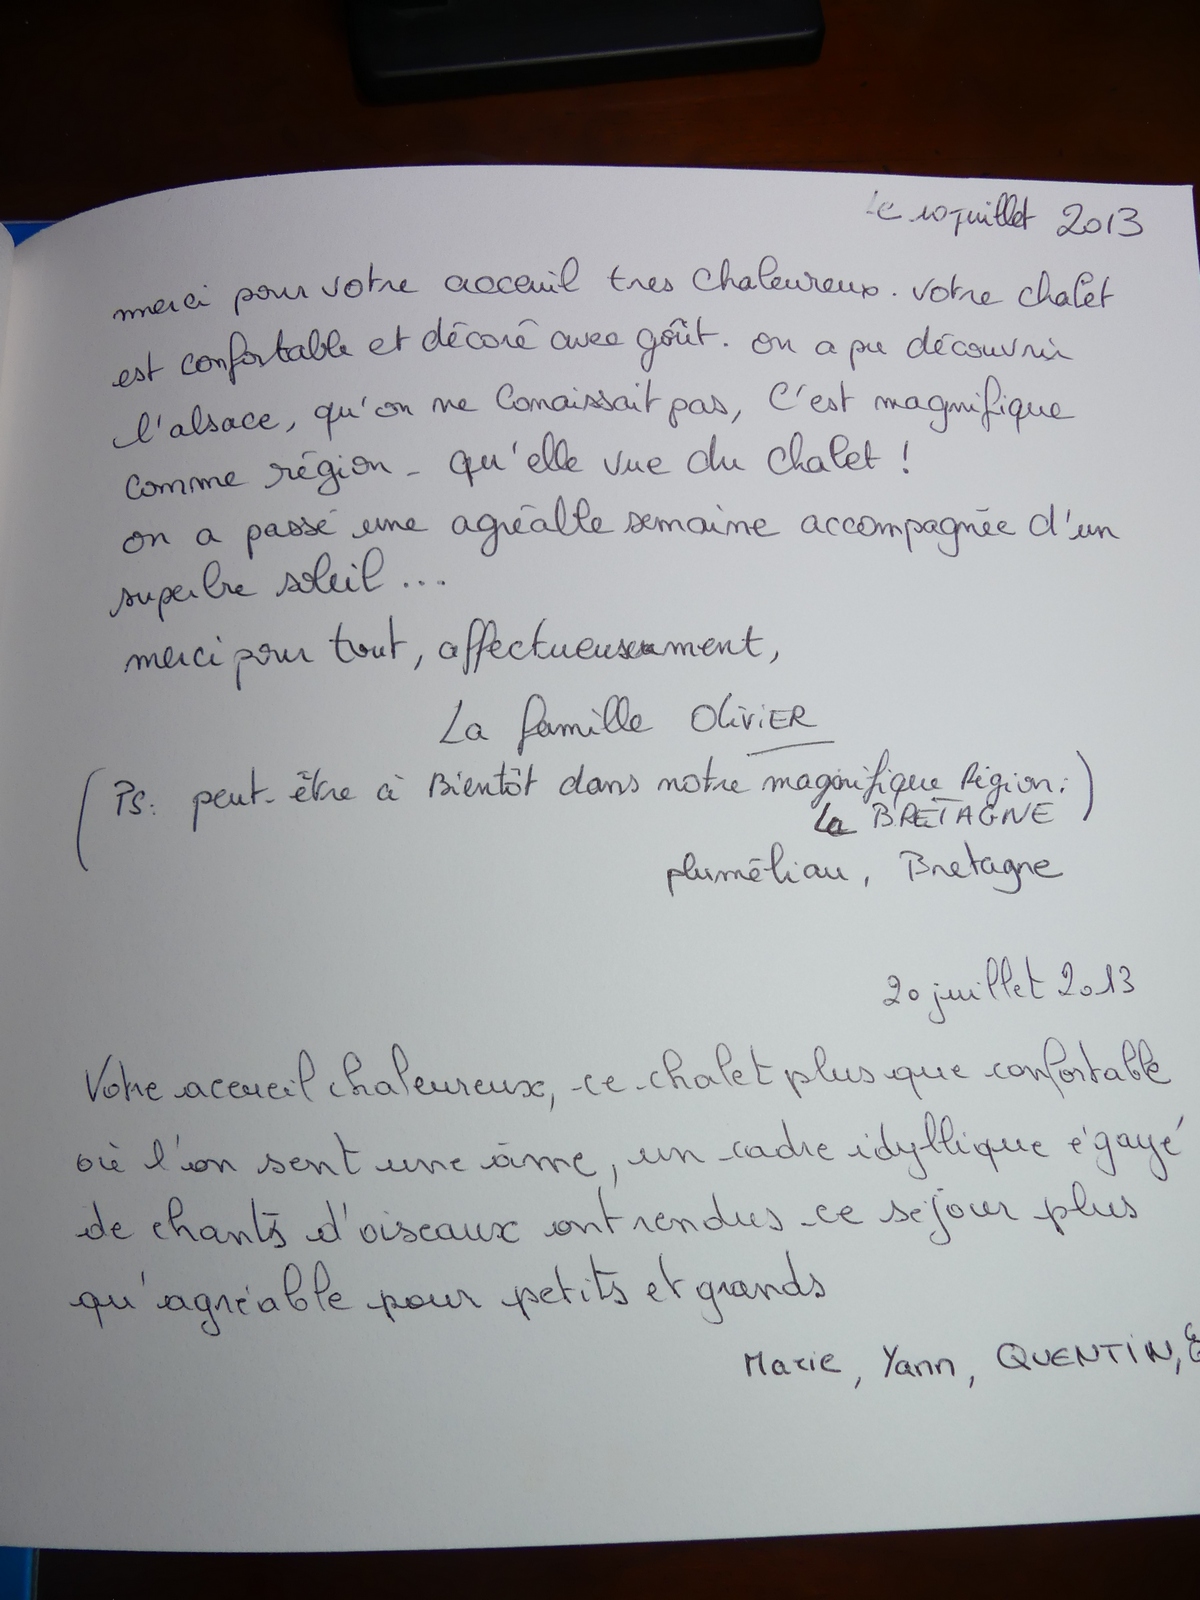 Le 10 juillet 2013
merci pour votre acceuil tres chaleureux. votre chalet
est confortable et décoré avec goût. on a pu découvrir
l'alsace, qu'on ne Conaissait pas, C'est magnifique
comme région - qu'elle vue du chalet !
on a passé une agréable semaine accompagnée d'un
superbe soleil ...
merci pour tout, affectueusement,
La famille OLIVIER
(PS: peut-être à Bientôt dans notre magnifique Région:
La BRETAGNE)
pluméliau, Bretagne
20 juillet 2013
Votre accueil chaleureux, ce chalet plus que confortable
où l'on sent une âme, un cadre idyllique égayé
de chants d'oiseaux ont rendus ce séjour plus
qu'agréable pour petits et grands
Marie, Yann, QUENTIN,